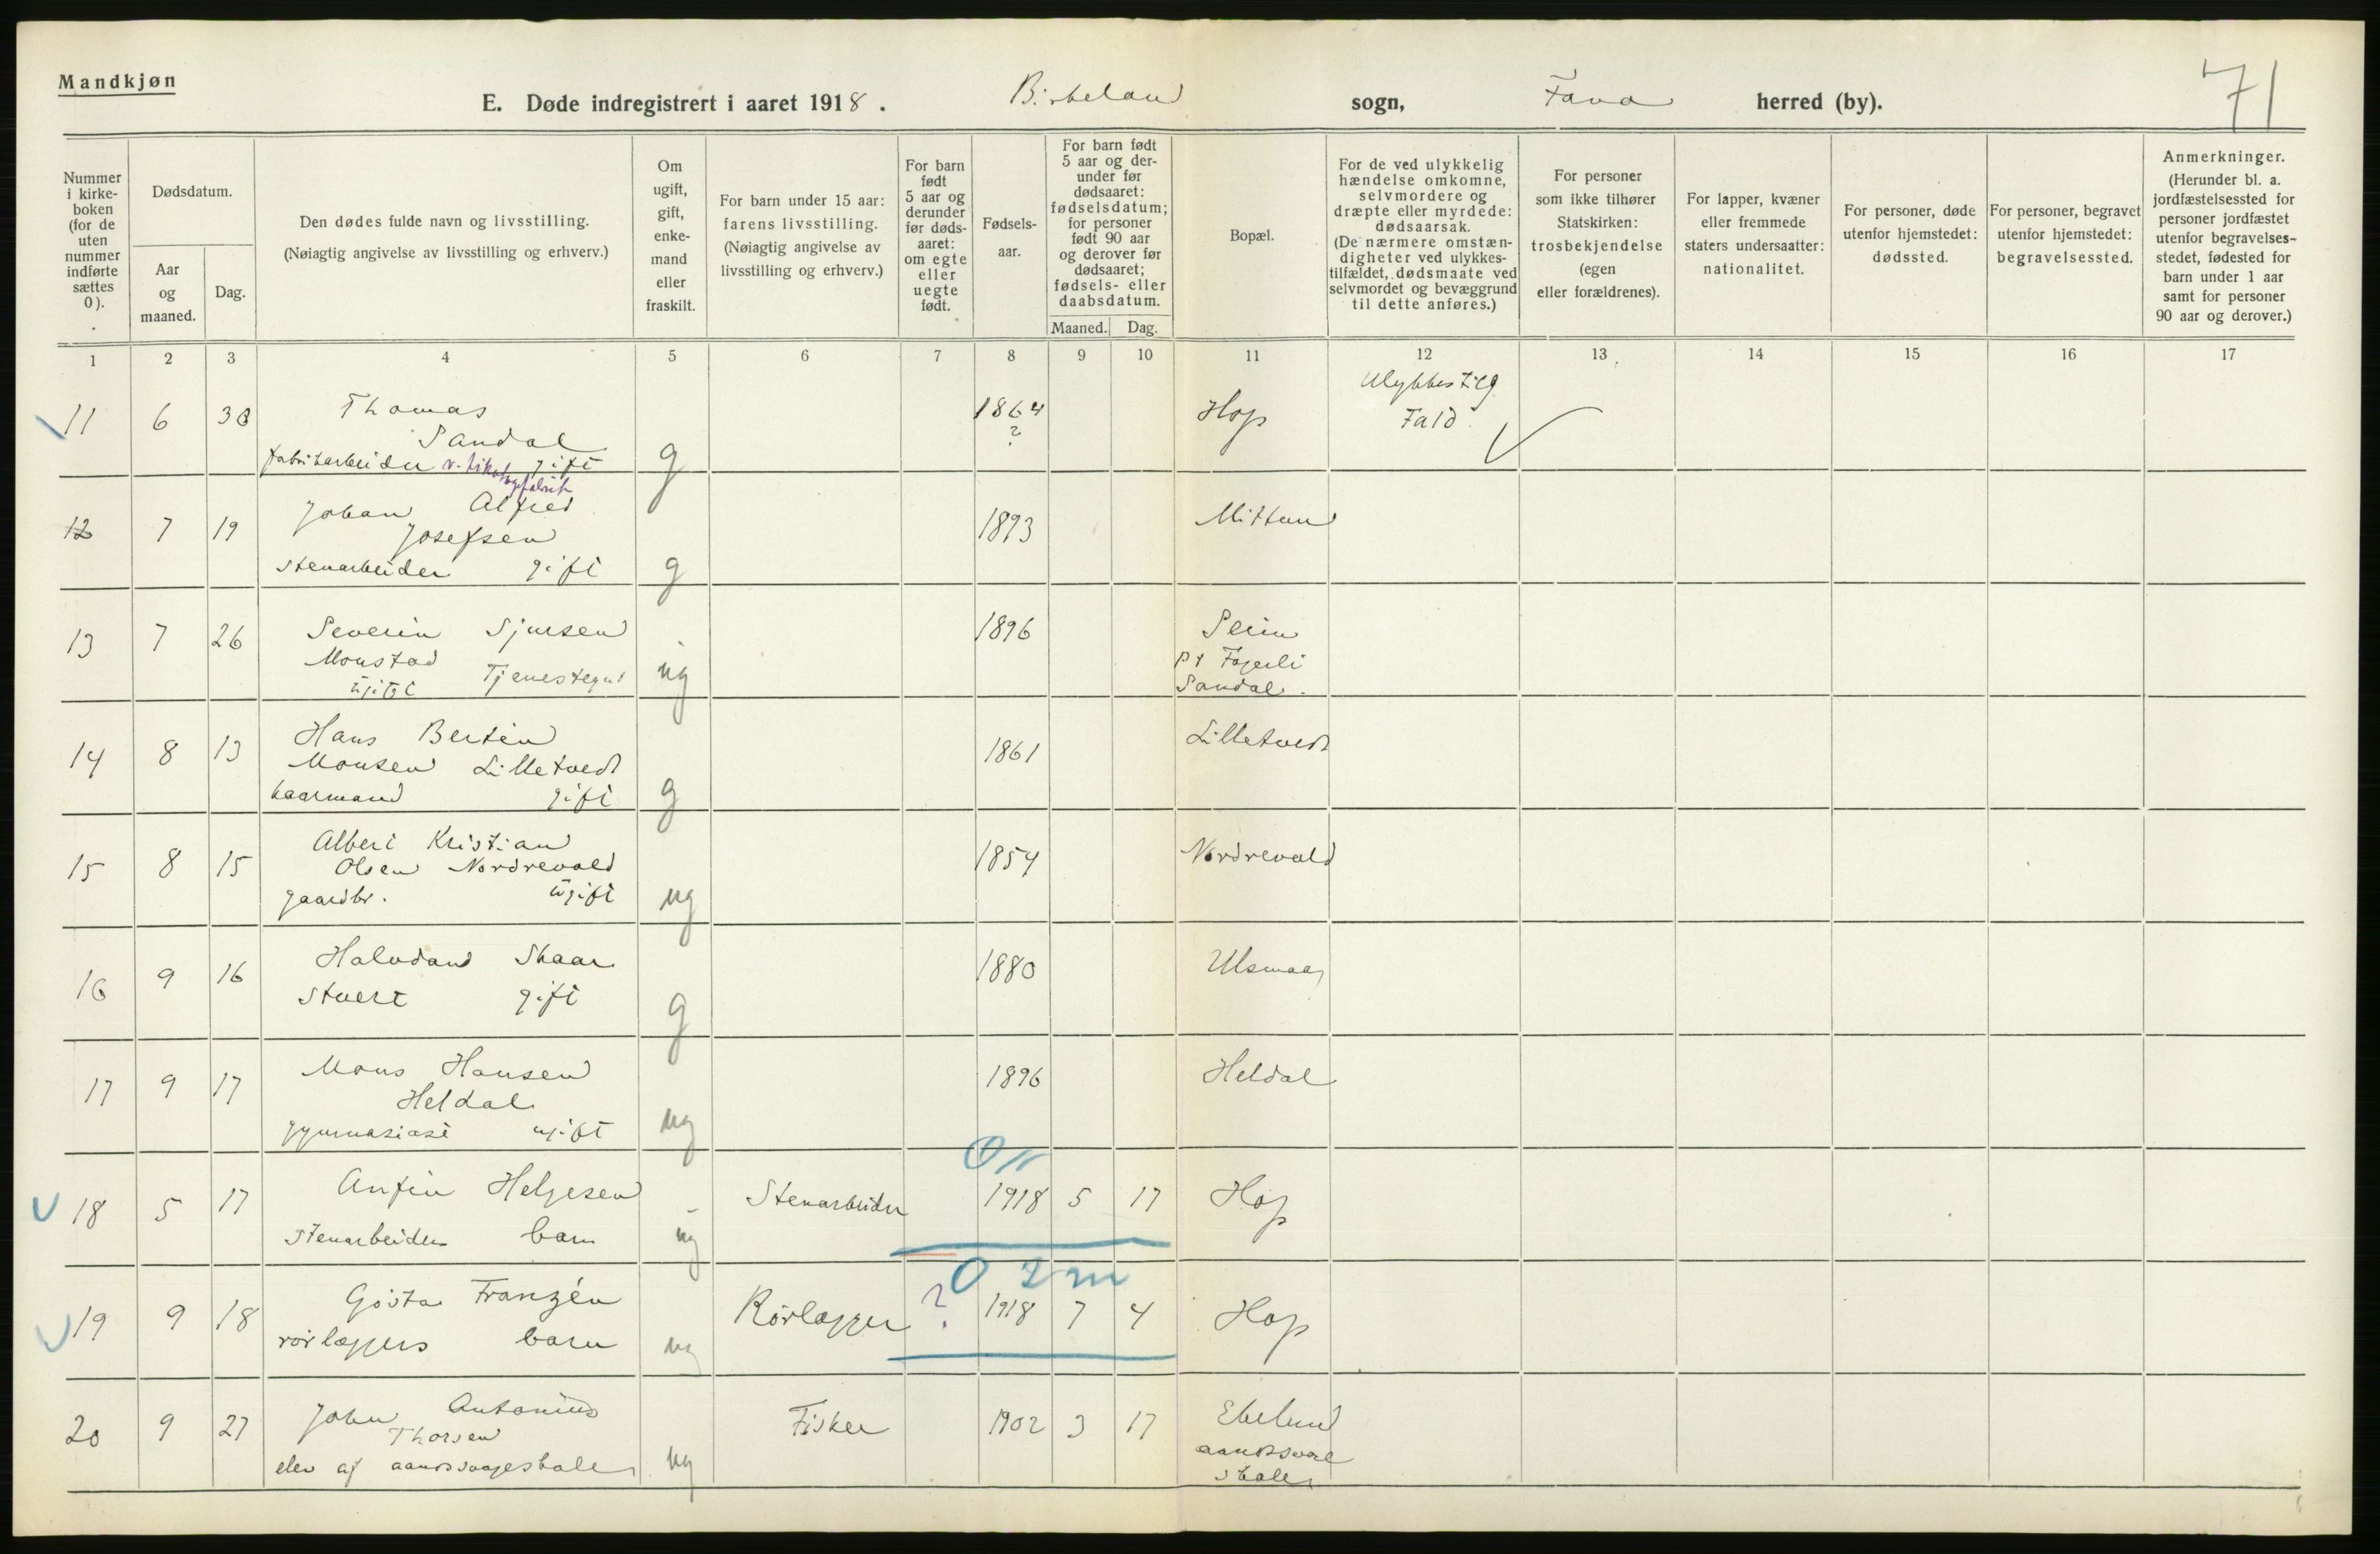 Mandkjøn
E. Døde indregistrert i aaret 1918. Birkeland sogn, Fana herred (by).
71
Nummer i kirkeboken (for de uten nummer indførte sættes 0).
Dødsdatum.
Aar og maaned.
Dag.
Den dødes fulde navn og livsstilling.
(Nøiagtig angivelse av livsstilling og erhverv.)
Om ugift, gift, enkemand eller fraskilt.
For barn under 15 aar: farens livsstilling.
(Nøiagtig angivelse av livsstilling og erhverv.)
For barn født 5 aar og derunder før dødsaaret: om egte eller uegte født.
Fødselsaar.
For barn født 5 aar og derunder før dødsaaret: fødselsdatum; for personer født 90 aar og derover før dødsaaret; fødsels- eller daabsdatum.
Maaned. Dag.
Bopæl.
For de ved ulykkelig hændelse omkomne, selvmordere og dræpte eller myrdede: dødsaarsak.
(De nærmere omstændigheter ved ulykkestilfældet, dødsmaate ved selvmordet og bevæggrund til dette anføres.)
For personer som ikke tilhører Statskirken: trosbekjendelse (egen eller forældrenes).
For lapper, kvæner eller fremmede staters undersaatter: nationalitet.
For personer, døde utenfor hjemstedet: dødssted.
For personer, begravet utenfor hjemstedet: begravelsessted.
Anmerkninger.
(Herunder bl. a. jordfæstelsessted for personer jordfæstet utenfor begravelsesstedet, fødested for barn under 1 aar samt for personer 90 aar og derover.)
1 2 3 4 5 6 7 8 9 10 11 12 13 14 15 16 17
11 6 30 Thomas Sandal 1864 ? Hop Ulykkestilf Fald
fabrikarbeider v. trikotagefabrik gift g
12 7 19 Johan Alfred Josefsen 1893
stenarbeider gift g
13 7 26 Severin Sjursen 1896
Monstad Tjenestegut
ugift ug
Sandal.
14 8 13 Hans Bertin 1861 Lilletvedt
Monsen Lilletvedt
kaarmand gift g
15 8 15 Albert Kristian 1854 Nordrevold
Olsen Nordrevold
gaardbr. ugift ug
16 9 16 Halvdan Skaar 1880 Ulsmaag
gift g
17 9 17 Mons Hansen 1896 Heldal
Heldal
gymnasiast ugift ug
18 5 17 Anfin Helgesen Stenarbeider 1918 5 17 Hop
stenarbeiders barn ug
0 2 m
19 9 18 Gösta Franzén Rörlægger ? 1918 7 4 Hop
rörlæggers barn ug
20 9 27 John Antonius Fisker 1902 3 17 Ekelund
Thorsen
elev af aandssvageskole ug
skole